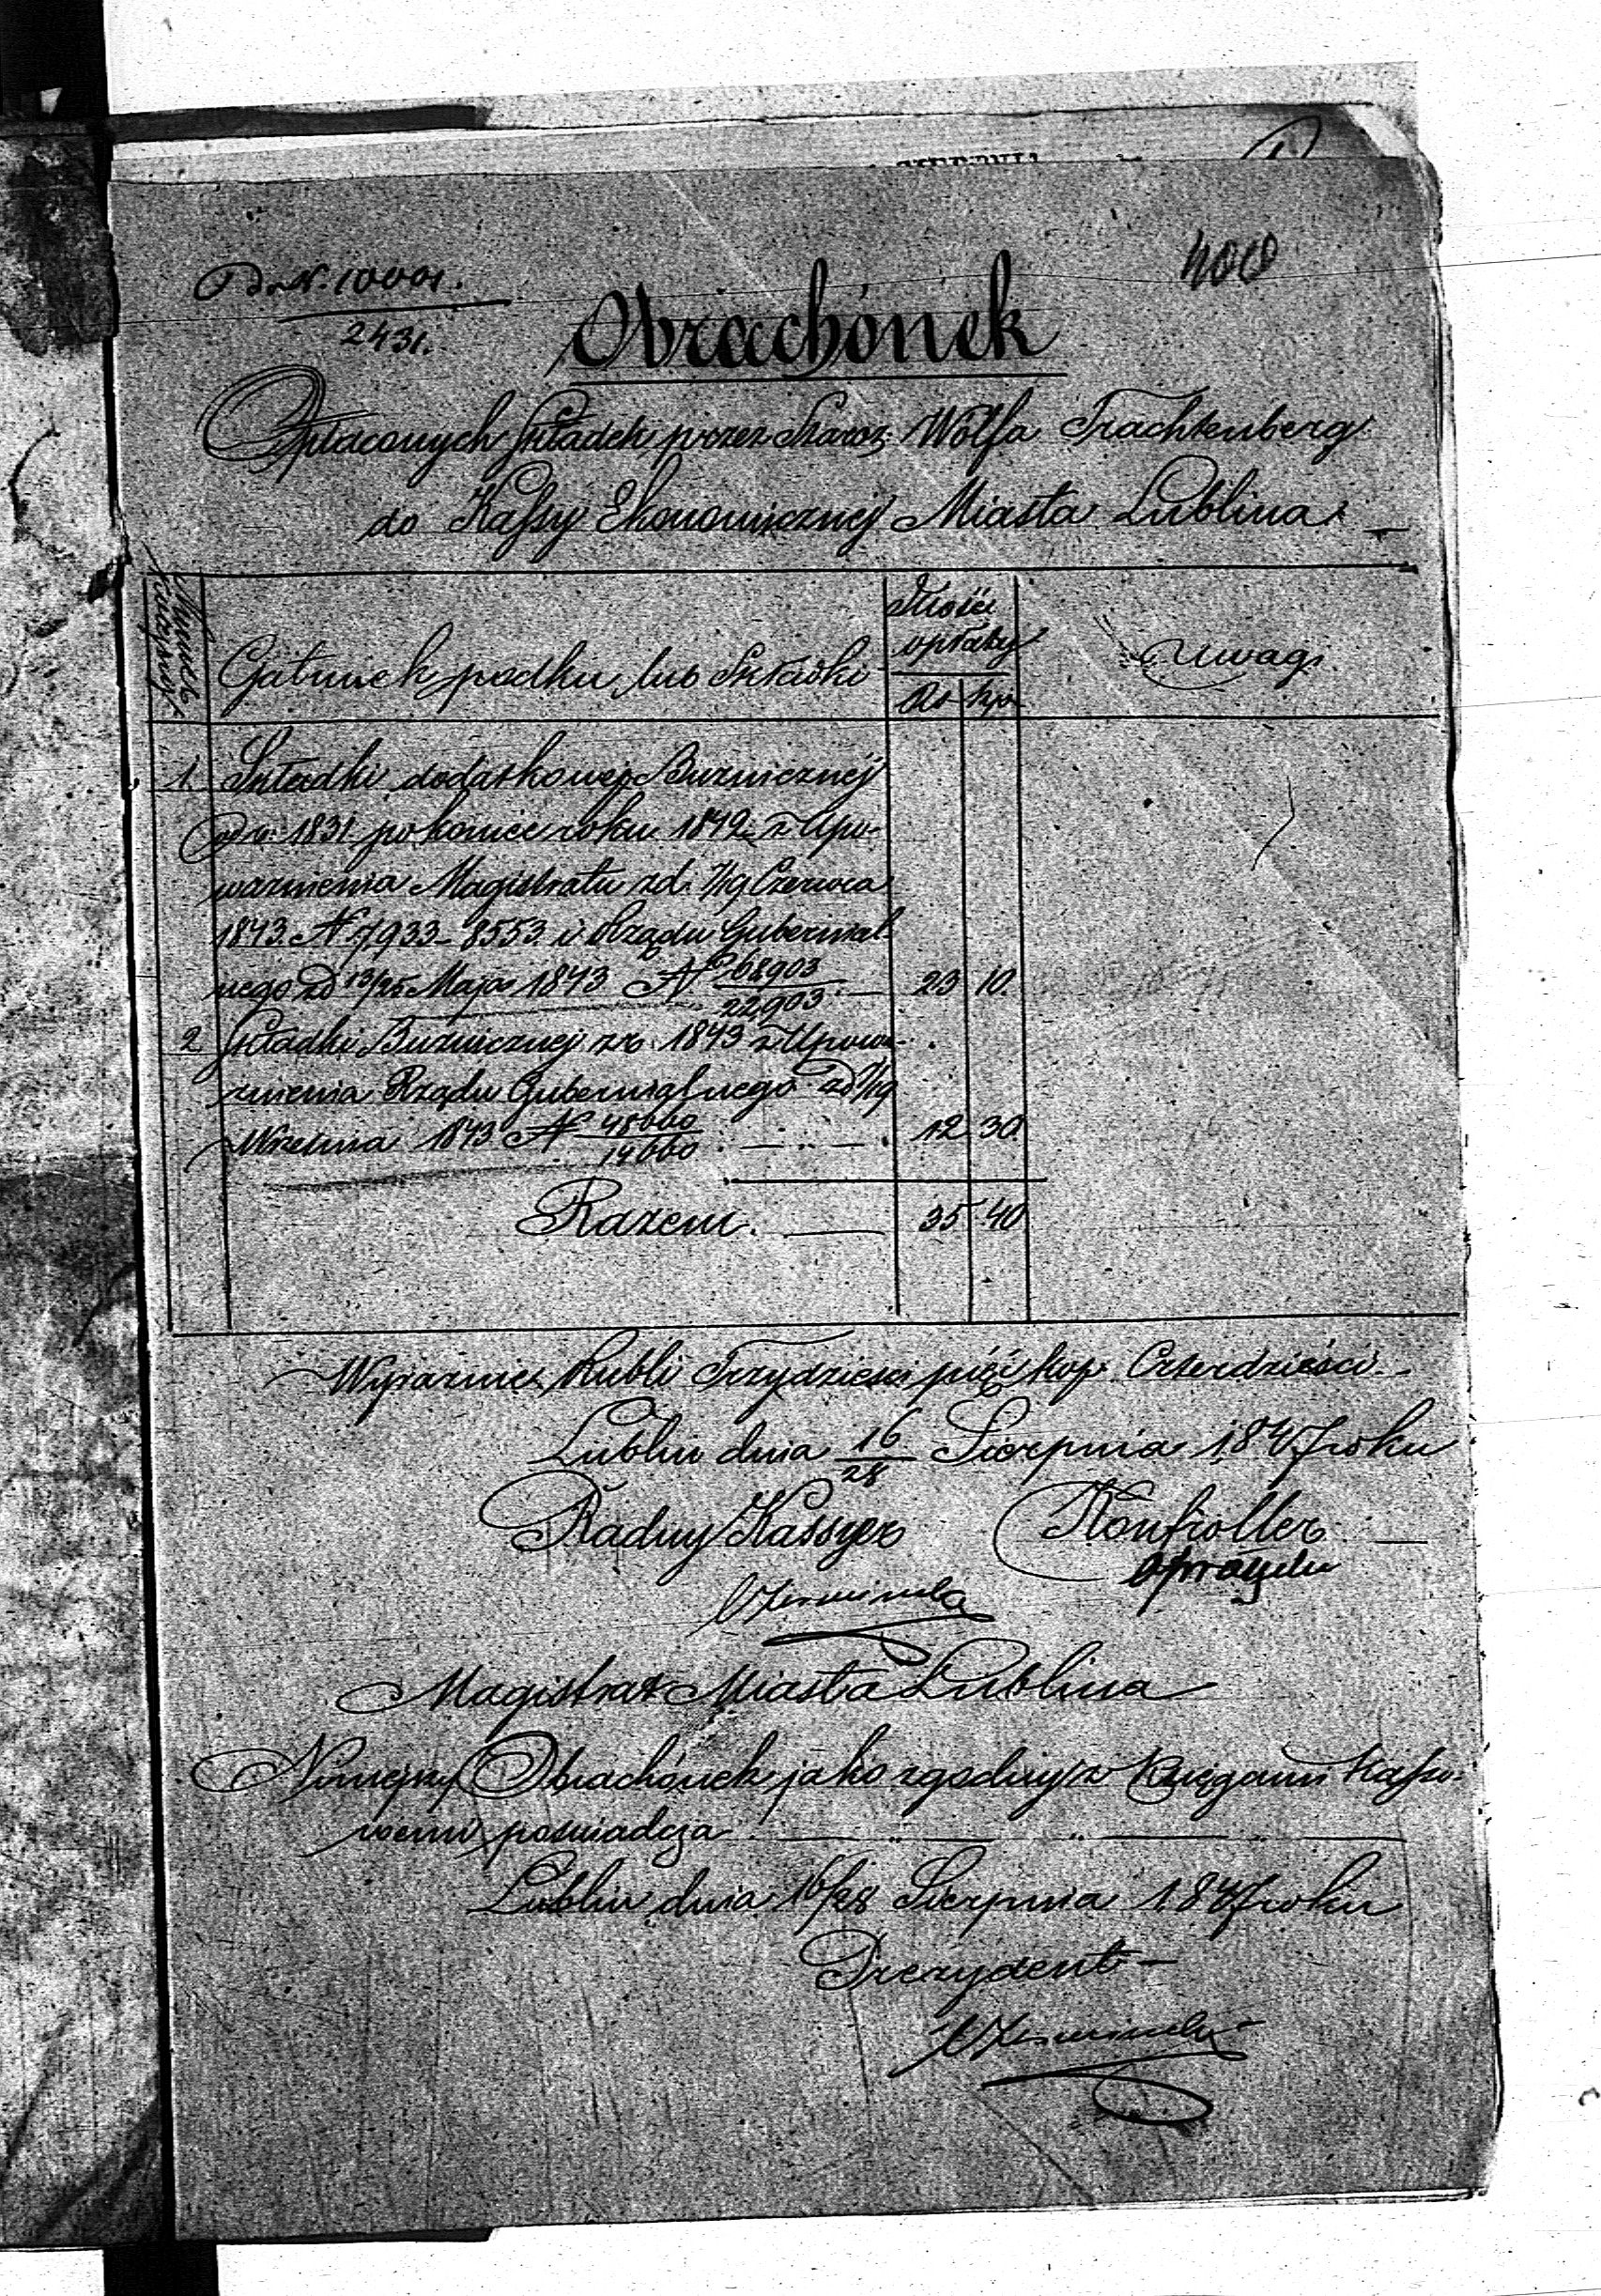 400
Do N. 10001.
2431.
Obrachónek
Opłaconych Składek przez Staroz. Wolfa Trachtenberg
do Kassy Ekonomicznej Miasta Lublina
Numer
Gatunek podku lub Składki
Ilość
opłaty
Uwagi
Rs kp.
1. Składki dodatkowej Bużnicznej
od r. 1831 po koniec roku 1842 z Upo-
ważnienia Magistratu z d. 7/19 Czerwca
1843 N. 7933 - 8553 i Rządu Gubernial-
nego z d 13/25 Maja 1843 N 68903/22903 23 10.
2 Składki Bużnicznej z r. 1843 z Upowa-
żnienia Rządu Gubernialnego z d 7/19
Września 1843 N 45660/14660 12 30.
Razem. 35 40
Wyraźnie Rubli Trzydzieści pięć kop. Czterdzieści.
Lublin dnia 16/28 Sierpnia 1847 roku
Radny Kassyer Kontroller
Magistrat Miasta Lublina
Niniejszy Obrachónek jako zgodny z Księgami Kasso-
wemi poświadcza
Lublin dnia 16/28 Sierpnia 1847 roku
Prezydent